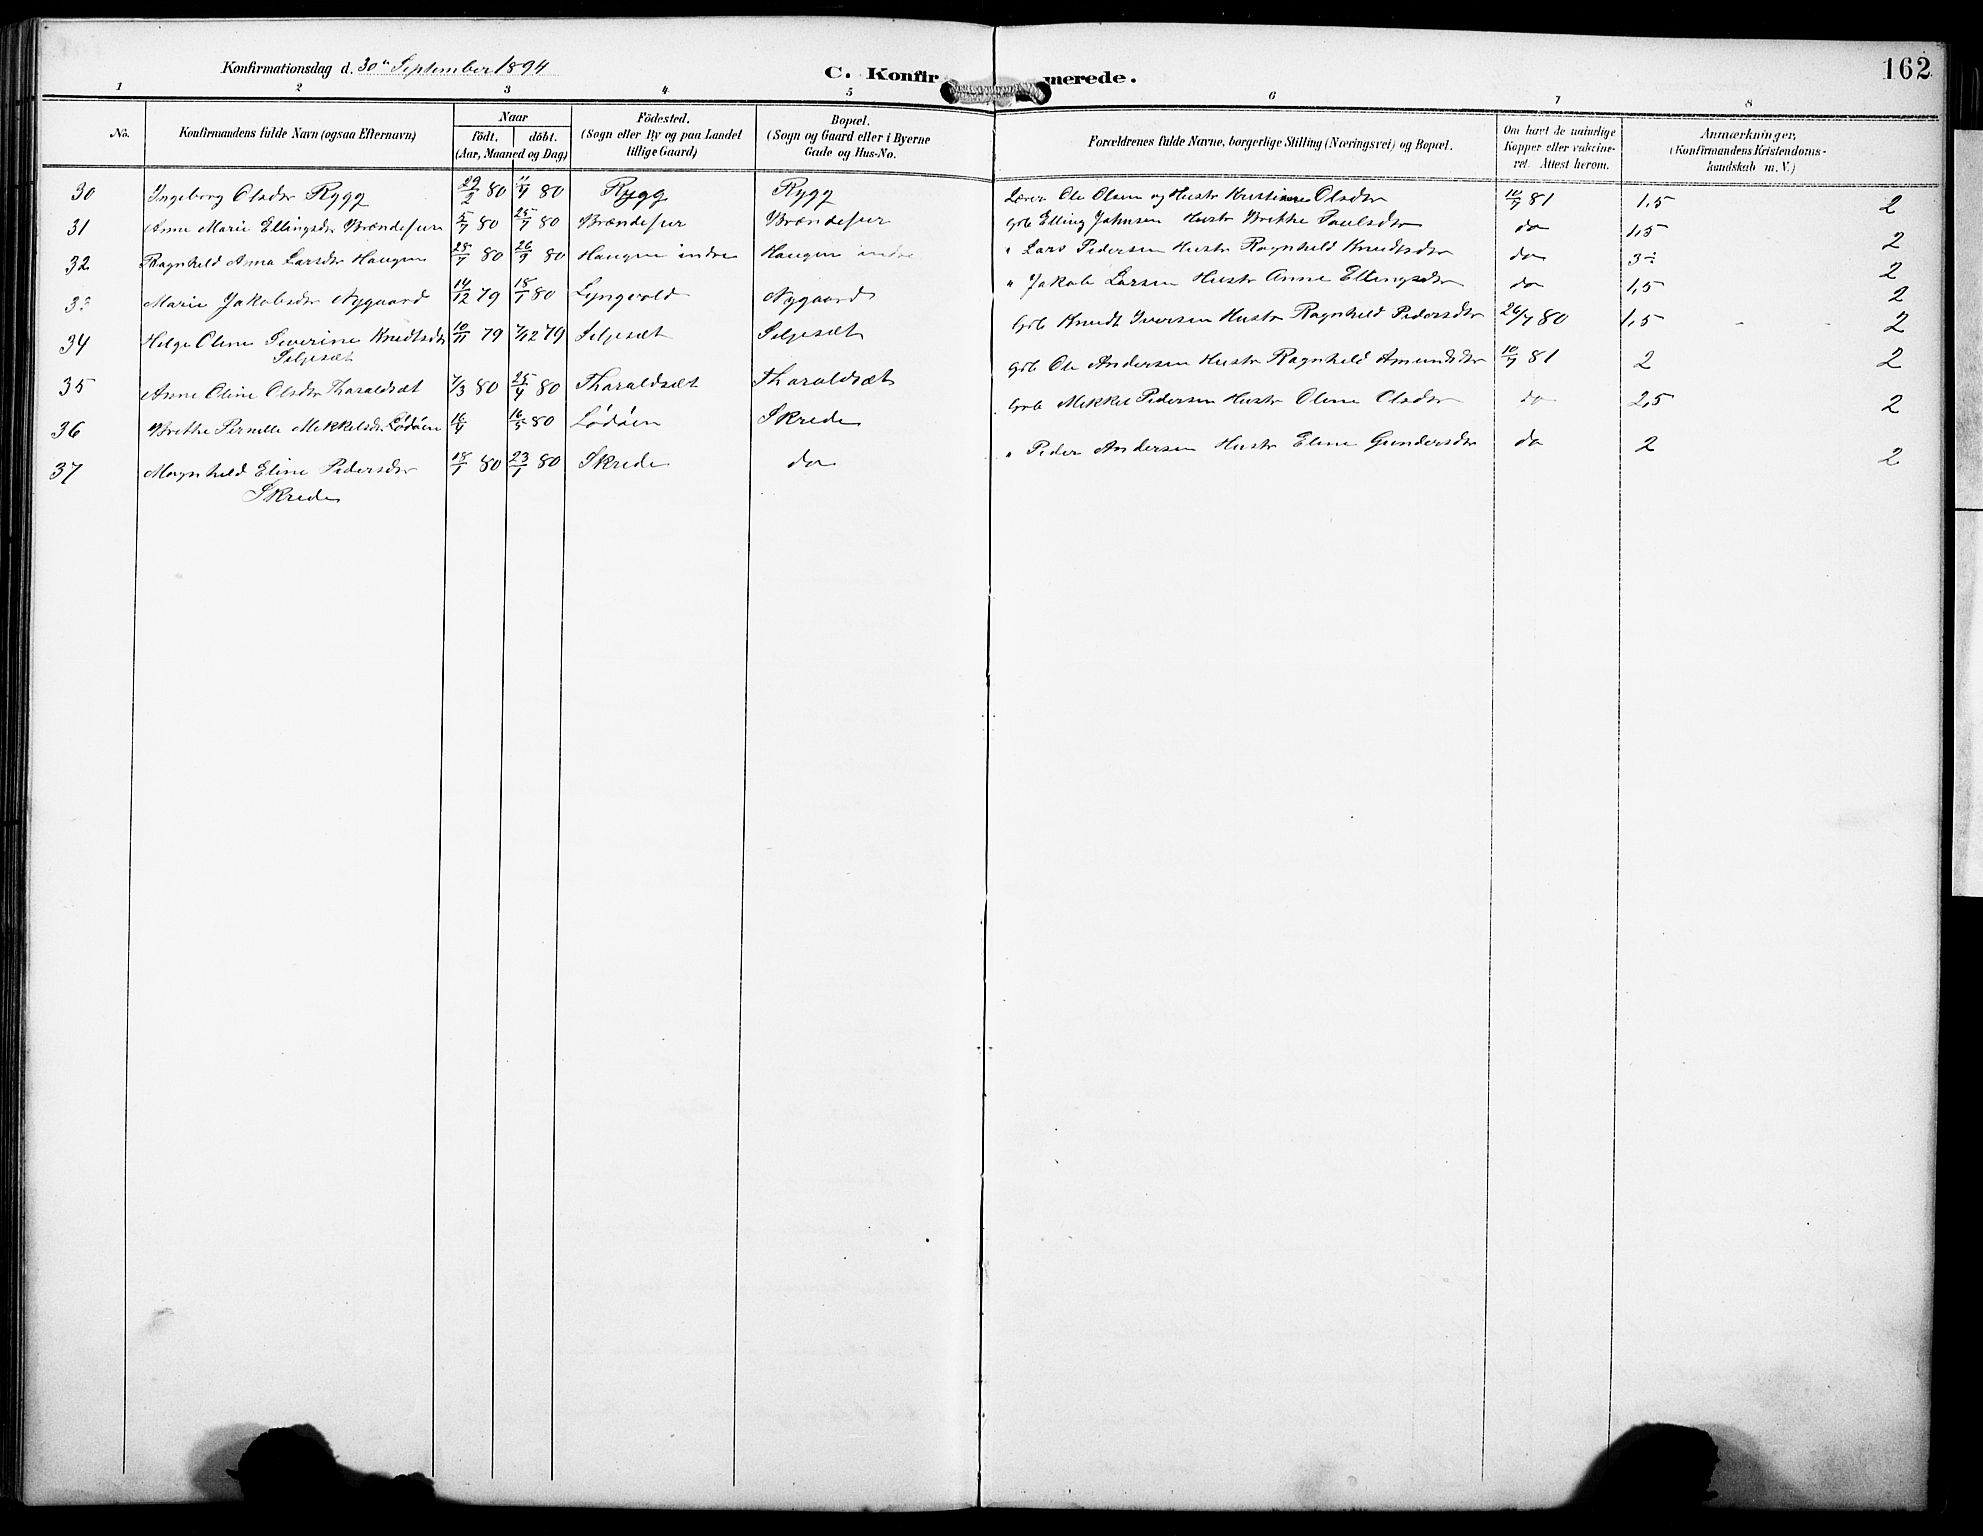 Konfirmationsdag d. 30te September 1894
C. Konfirmerede.
162
1 2 3 4 5 6 7 8
No. Konfirmandens fulde Navn (ogsaa Efternavn) Naar födt. döbt. (Aar, Maaned og Dag) Födested. (Sogn eller By og paa Landet tillige Gaard) Bopæl. (Sogn og Gaard eller i Byerne Gade og Hus-No. Forældrenes fulde Navne, borgerlige Stilling (Næringsvei) og Bopæl. Om havt de naturlige Kopper eller vaccineret. Attest herom. Anmærkninger, (Konfirmandens Kristendomskundskab m. V.)
30 Ingeborg Olsdtr Rygg 29/2 80 11/4 80 Rygg Rygg Lærer Ole Olsen og Hustr Kristianne Olsdtr 10/7 81 1,5 2
31 Anne Marie Ellingsdtr Brændefur 5/7 80 25/7 80 Brændefur Brændefur Grb Elling Johnsen Hustr Brithe Paulsdtr do 1,5 2
32 Ragnhild Anna Larsdtr Haugen 80 80 Haugen indre Haugen indre " Lars Pedersen Hustr Ragnhild Knudtsdtr do 3÷ 2
33 Marie Jakobsdtr Nygaard 14/12 79 18/1 80 Lyngvold Nygaard " Jakob Larsen Hustr Anne Ellingsdtr do 1,5 2
34 Helge Oline Severine Knudtsdtr 10/11 79 7/12 79 Seljesæt Seljesæt Grb Knudt Iversen Hustr Ragnhild Pedersdtr 26/7 80 1,5 2
Seljesæt
35 Anne Oline Olsdtr Tharaldsæt 7/3 80 25/4 80 Tharaldsæt Tharaldsæt Grb Ole Andersen Hustr Ragnhild Amundsdtr 10/7 81 2 2
36 Brithe Pernille Mekkelsdtr Lødøen 16/4 16/5 80 Lødøen Skrede Grb Mekkel Pedersen Hustr Oline Olsdtr do 2,5 2
37 Magnhild Eline Pedersdtr 18/1 80 23/1 80 Skrede do " Peder Andersen Hustr Eline Gundersdtr do 2 2
Skrede